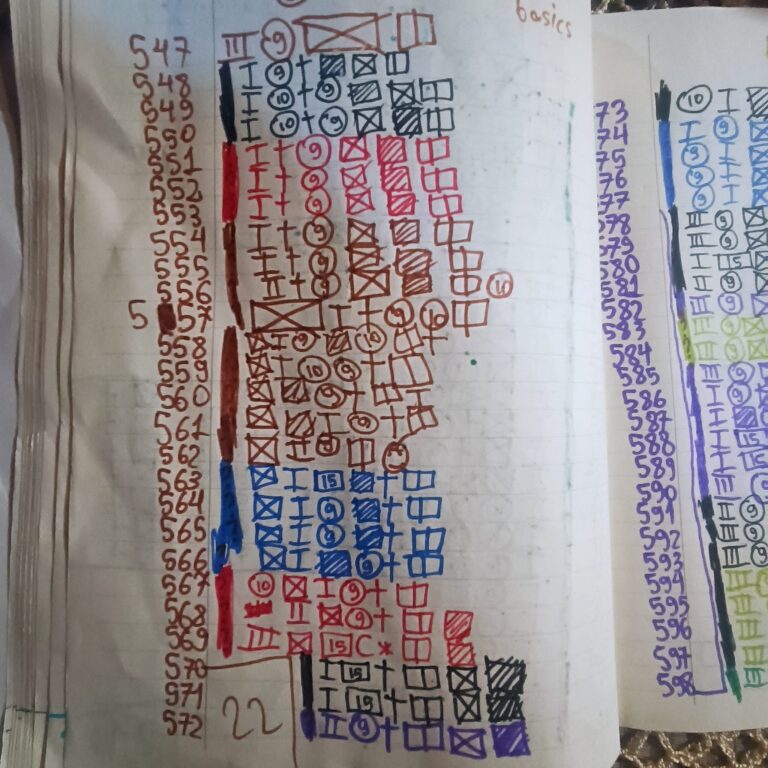 basics
547 III 9
548 I 9 +
549 I 10 + 9
550 I 10 + 9
551 I + 9
552 I + 9
553 I + 9
554 I + 9
555 I + 9
556 II + 9 10
557 I + 9 10
558 I 9 10 +
559 I 10 9 +
560 I +
561 I 9 +
562 I
563 I 15 +
564 I 9 +
565 I 9 +
566 I 9 +
567 10 I 9 +
568 II 9 +
569 III 15 C *
570 I 15 +
971 I 15 +
572 II 9 +
22
73 10 I
74 I 9
75 9 I
76 9 I
77 9 I
578
579
580
581
582
583
584
585
586
587
588
589
590
591
592
593
594
595
596
597
598